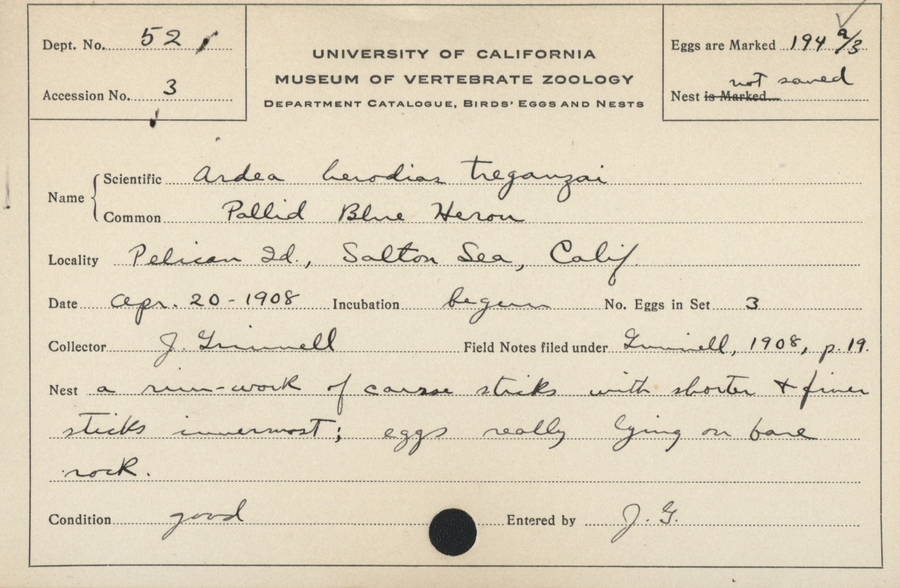 Dept. No. 52
UNIVERSITY OF CALIFORNIA
MUSEUM OF VERTEBRATE ZOOLOGY
DEPARTMENT CATALOGUE, BIRDS' EGGS AND NESTS
Accession No. 3
Eggs are Marked 194 a/3
not saved
Nest is Marked
Name
Scientific Ardea herodias treganzai
Common Pallid Blue Heron
Locality Pelican Id., Salton Sea, Calif.
Date Apr. 20-1908 Incubation begun No. Eggs in Set 3
Collector J. Grinnell Field Notes filed under Grinnell, 1908, p. 19.
Nest a rim-work of coarse sticks with shorter & finer
sticks innermost; eggs really lying on bare
rock.
Condition good Entered by J. G.